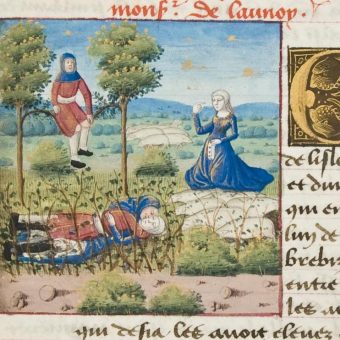 monsr. de launoy.
C
de lisle
et dun
qui en
luy de
brebis
entre
les au
qui desia les auoit esleuez